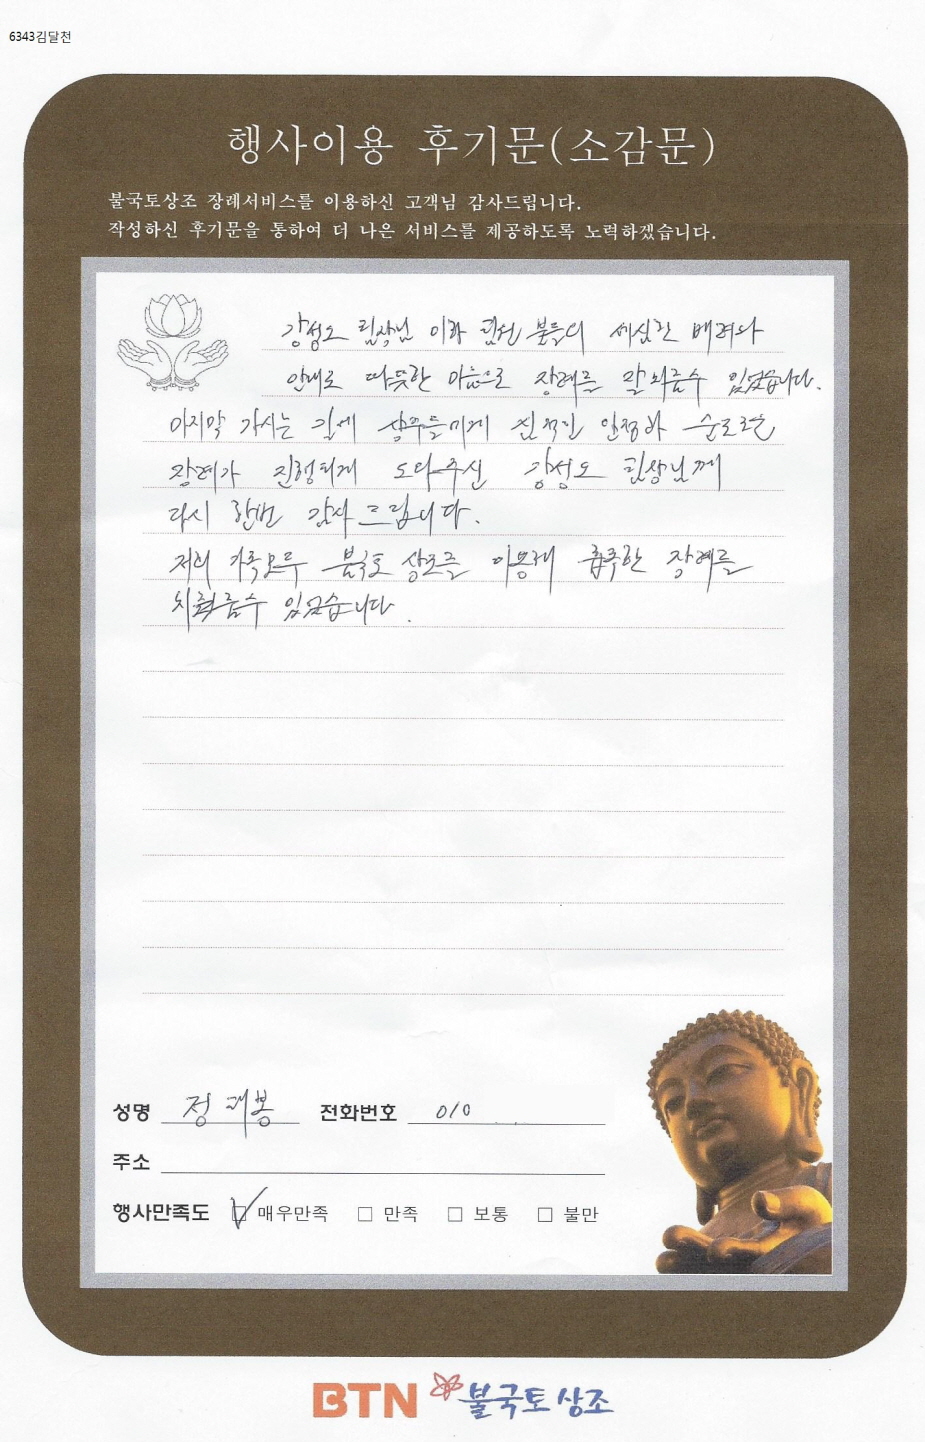 6343김달천
행사이용 후기문(소감문)
불국토상조 장례서비스를 이용하신 고객님 감사드립니다.
작성하신 후기문을 통하여 더 나은 서비스를 제공하도록 노력하겠습니다.
강성오 팀장님 이하 팀원 분들의 세심한 배려와
안내로 따뜻한 마음으로 장례를 잘 치를수 있었습니다.
마지막 가시는 길에 상주들에게 심적인 안정과 순조로운
장례가 진행되게 도와주신 강성오 팀장님께
다시 한번 감사드립니다.
저희 가족모두 불국토 상조를 이용해 훌륭한 장례를
치를수 있었습니다.
성명 정재봉 전화번호 010
주소
행사만족도 매우만족 □ 만족 □ 보통 □ 불만
BTN 불국토상조